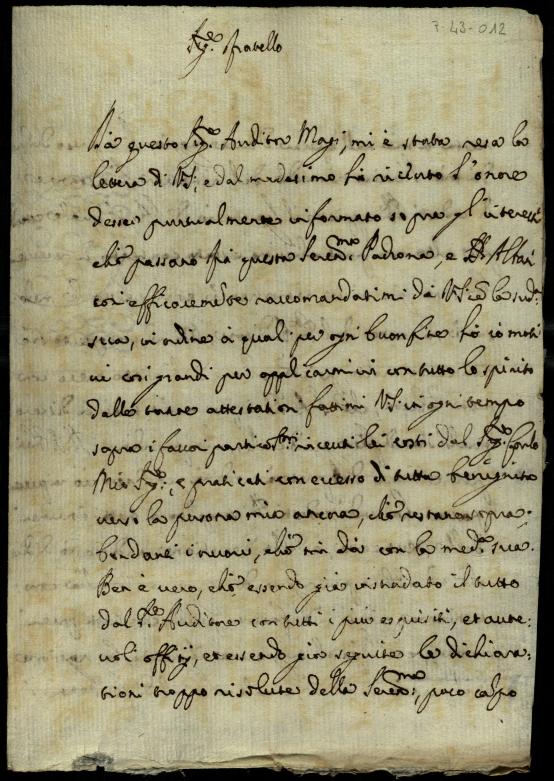 7-43-012
Sig.re fratello
Da questo Sig.re Auditor Magi, mi è stata resa la
lettera di VS; e dal medesimo hò riceuto l'onore
desser puntualmente informato sopra gl'interessi
che passano frà questa Seren.ma Padrona, e Altari
così efficacemente raccomandatimi da VS: la sud.a
seca, in ordine à quali per ogni buon fine hò io moti
ui così grandi per applicarmici con tutto lo spirito
dalle tante attestationi fattimi VS: in ogni tempo
sopra i fauori riceuuti lei costì dal Sig.re
Mio Sig.re, e praticati con eccesso di tutta benignità
uerso la persona mia ancora, che restano sopra:
bondanti i nuoui, che mi dà con la med.a sua.
Ben è uero, che essendo già instradato il tutto
dal S.re Auditore con tutti i più esquisiti, et aute:
uoli offitij, et essendo già seguite le dichiara:
tioni troppo risolute della Seren.ma, poco